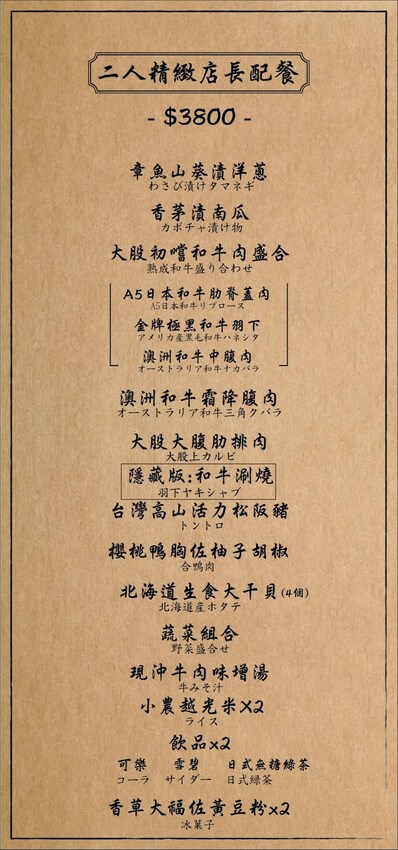 二人精緻店長配餐
- $3800 -
章魚山葵漬洋蔥
わさび漬けタマネギ
香茅漬南瓜
カボチャ漬け物
大股初嚐和牛肉盛合
熟成和牛盛り合わせ
A5日本和牛肋脊蓋肉
A5日本和牛リブロース
金牌極黑和牛羽下
アメリカ産黒毛和牛ハネシタ
澳洲和牛中腹肉
オーストラリア和牛ナカバラ
澳洲和牛霜降腹肉
オーストラリア和牛三角クバラ
大股大腹肋排肉
大股上カルビ
隱藏版:和牛涮燒
羽下ヤキシャブ
台灣高山活力松阪豬
トントロ
櫻桃鴨胸佐柚子胡椒
合鴨肉
北海道生食大干貝(4個)
北海道産ホタテ
蔬菜組合
野菜盛合せ
現沖牛肉味增湯
牛みそ汁
小農越光米X2
ライス
飲品x2
可樂 雪碧 日式無糖綠茶
コーラ サイダー 日式緑茶
香草大福佐黃豆粉x2
冰菓子